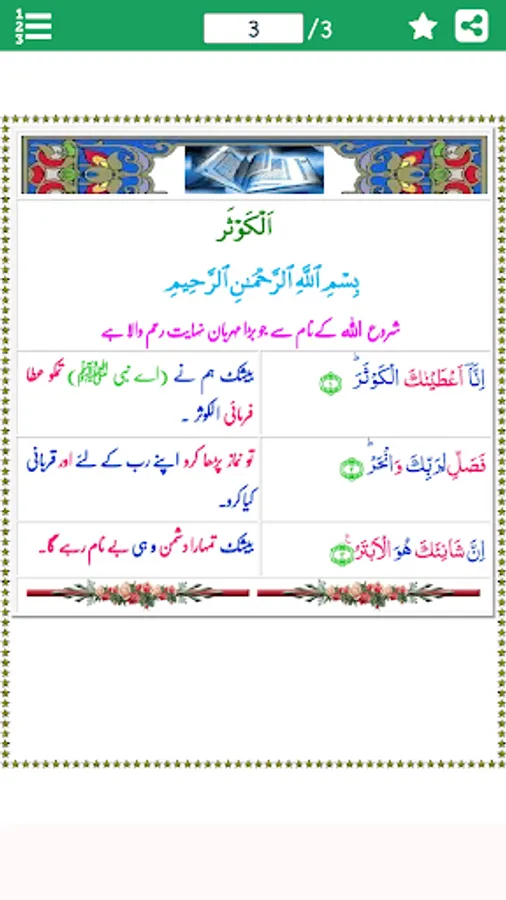 1
2
3
3
/3
اَلْكَوْثَر
بِسْمِ ٱللَّهِ ٱلرَّحْمَٰنِ ٱلرَّحِيمِ
شروع اللہ کے نام سے جو بڑا مہربان نہایت رحم والا ہے
اِنَّاۤ اَعْطَيْنٰكَ الْكَوْثَرَؕ ﴿۱﴾
بیشک ہم نے (اے نبی ﷺ) تمکو عطا
فرمائی الکوثر ۔
فَصَلِّ لِرَبِّكَ وَانْحَرْؕ ﴿۲﴾
تو نماز پڑھا کرو اپنے رب کے لئے اور قربانی
کیا کرو۔
اِنَّ شَانِئَكَ هُوَ الْاَبْتَرُ ﴿۳﴾
بیشک تمہارا دشمن وہی بے نام رہے گا۔